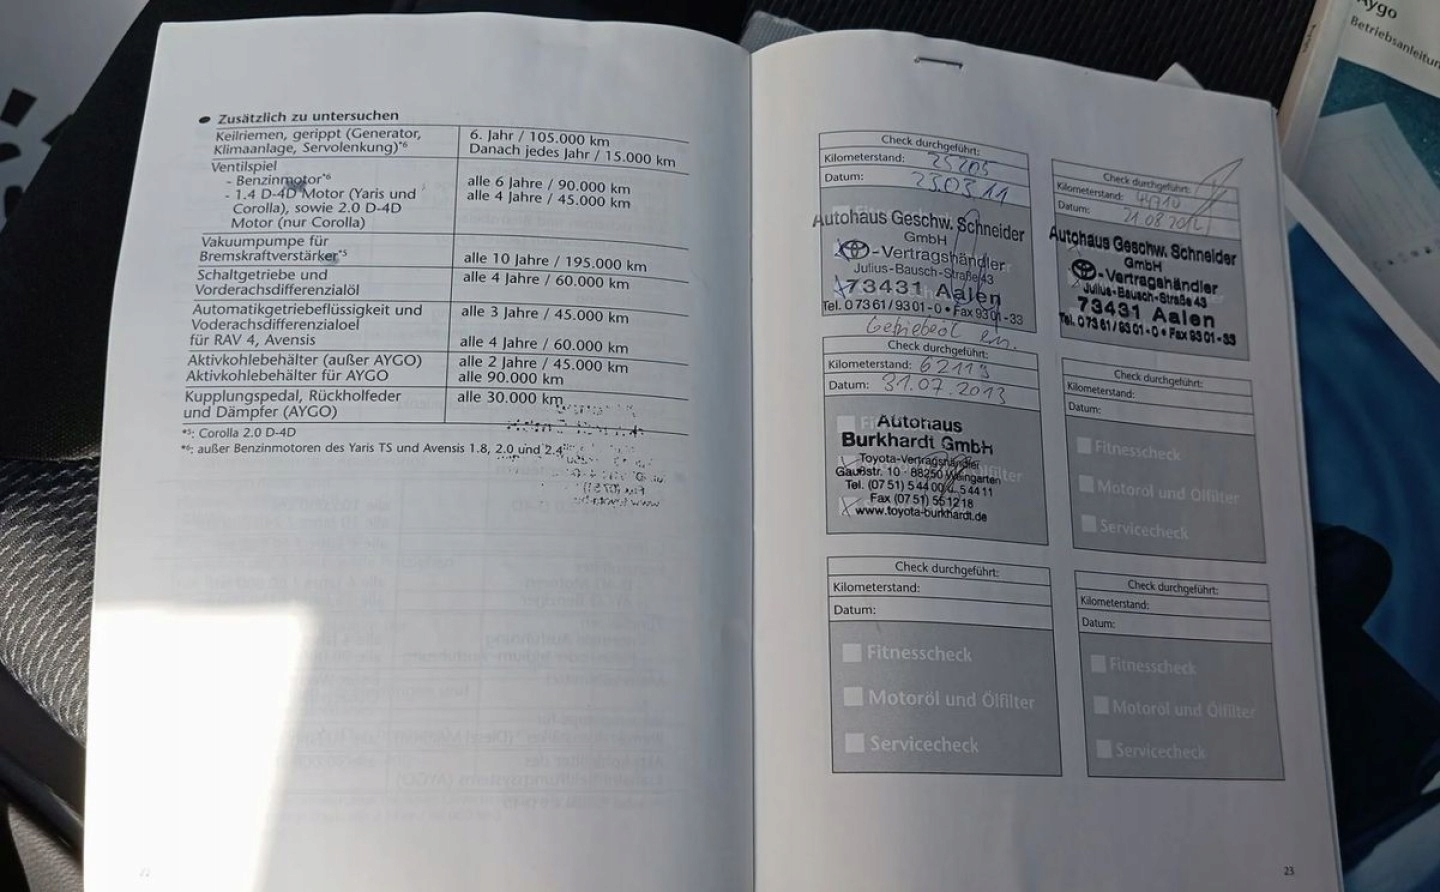 ● Zusätzlich zu untersuchen
Keilriemen, gerippt (Generator,
Klimaanlage, Servolenkung)*6
6. Jahr / 105.000 km
Danach jedes Jahr / 15.000 km
Ventilspiel
- Benzinmotor*6
- 1.4 D-4D Motor (Yaris und
Corolla), sowie 2.0 D-4D
Motor (nur Corolla)
alle 6 Jahre / 90.000 km
alle 4 Jahre / 45.000 km
Vakuumpumpe für
Bremskraftverstärker*5
alle 10 Jahre / 195.000 km
Schaltgetriebe und
Vorderachsdifferenzialöl
alle 4 Jahre / 60.000 km
Automatikgetriebeflüssigkeit und
Voderachsdifferenzialoel
für RAV 4, Avensis
alle 3 Jahre / 45.000 km
alle 4 Jahre / 60.000 km
Aktivkohlebehälter (außer AYGO)
Aktivkohlebehälter für AYGO
alle 2 Jahre / 45.000 km
alle 90.000 km
Kupplungspedal, Rückholfeder
und Dämpfer (AYGO)
alle 30.000 km
*5: Corolla 2.0 D-4D
*6: außer Benzinmotoren des Yaris TS und Avensis 1.8, 2.0 und 2.4
Check durchgeführt:
Kilometerstand: 25205
Datum: 23.03.11
Autohaus Geschw. Schneider
GmbH
-Vertragshändler
Julius-Bausch-Straße 43
73431 Aalen
Tel. 0 73 61 / 93 01 - 0 • Fax 93 01 - 33
Getriebeöl
Check durchgeführt:
Kilometerstand:
Datum: 21.08.2012
Autohaus Geschw. Schneider
GmbH
-Vertragshändler
Julius-Bausch-Straße 43
73431 Aalen
Tel. 0 73 61 / 93 01 - 0 • Fax 93 01 - 33
Check durchgeführt:
Kilometerstand: 62113
Datum: 31.07.2013
Autohaus
Burkhardt GmbH
Toyota-Vertragshändler
Gaußstr. 10 · 88250 Weingarten
Tel. (07 51) 5 44 00 5 44 11
Fax (07 51) 55 12 18
www.toyota-burkhardt.de
Check durchgeführt:
Kilometerstand:
Datum:
Fitnesscheck
Motoröl und Ölfilter
Servicecheck
Check durchgeführt:
Kilometerstand:
Datum:
Fitnesscheck
Motoröl und Ölfilter
Servicecheck
Check durchgeführt:
Kilometerstand:
Datum:
Fitnesscheck
Motoröl und Ölfilter
Servicecheck
23
Aygo
Betriebsanleitung